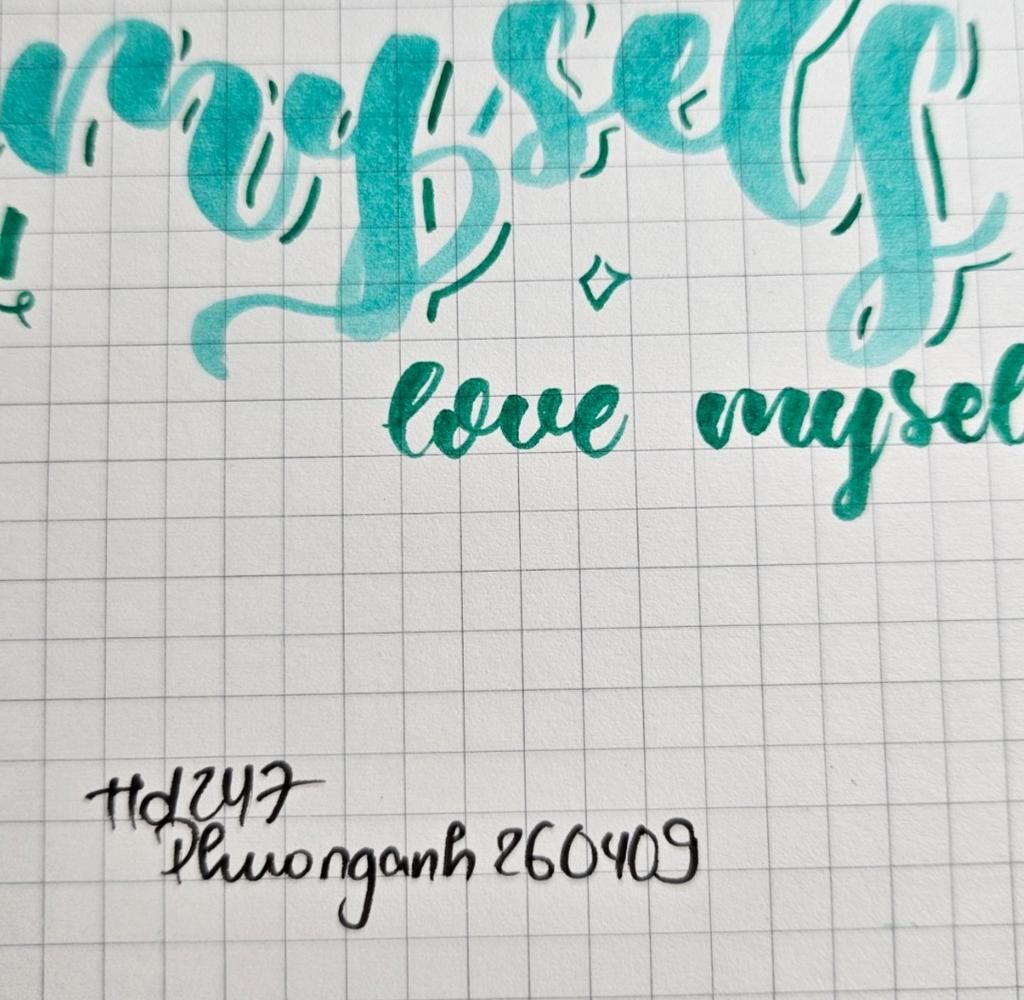 myself
love mysel
Hd247
Phuonganh260409